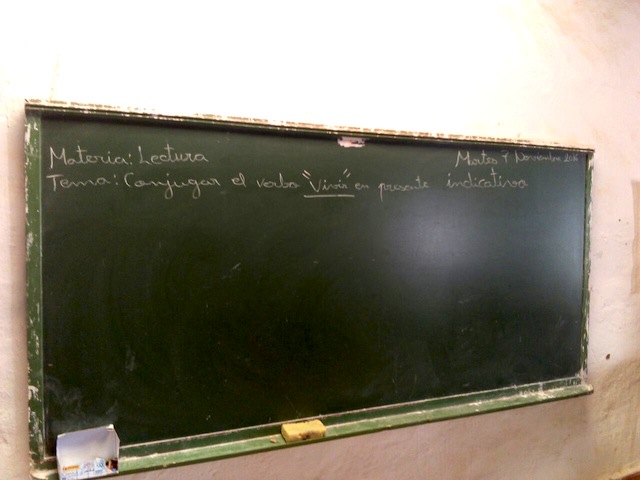 Materia: Lectura
Martes 7 Noviembre 2016
Tema: Conjugar el verbo "Vivir" en presente indicativo